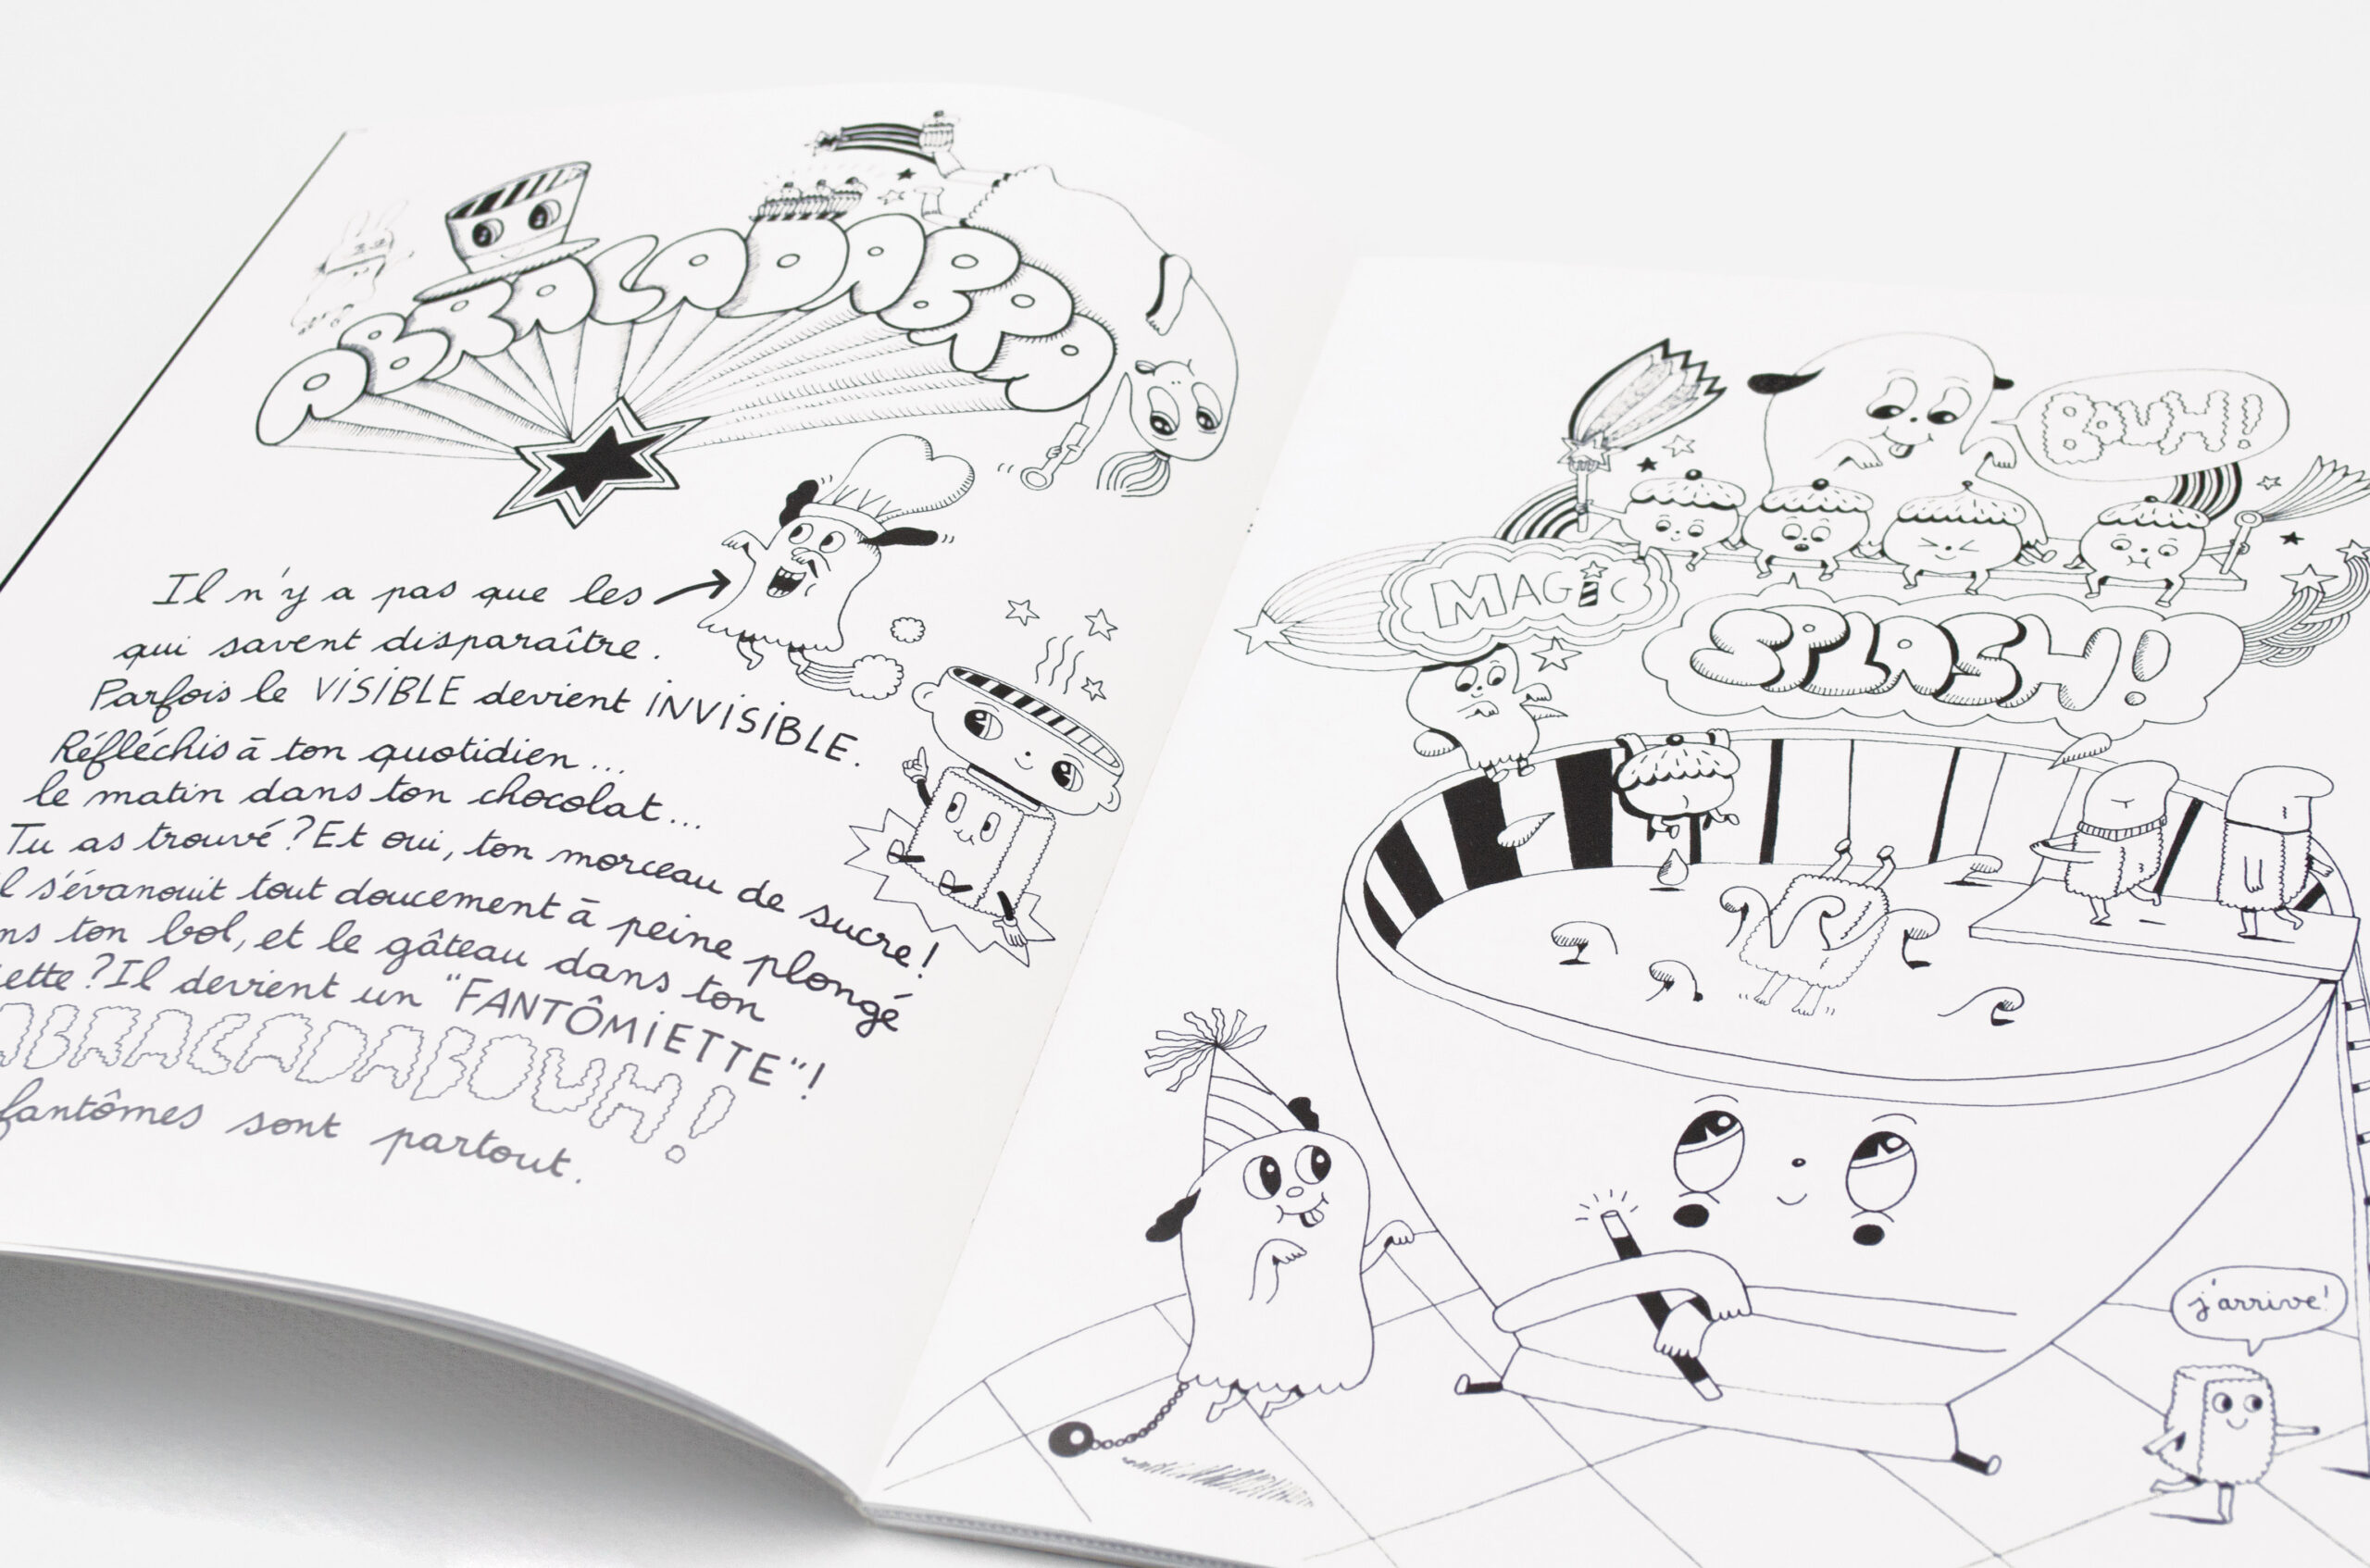 ABRACADABRA
Il n'y a pas que les
qui savent disparaître.
Parfois le VISIBLE devient INVISIBLE.
Réfléchis à ton quotidien...
le matin dans ton chocolat...
Tu as trouvé? Et oui, ton morceau de sucre!
s'évanouit tout doucement à peine plongé
ton bol, et le gâteau dans ton
Il devient un "FANTÔMIETTE"!
ABRACADABOUH!
fantômes sont partout.
BOUH!
MAGIC
SPLASH!
j'arrive!